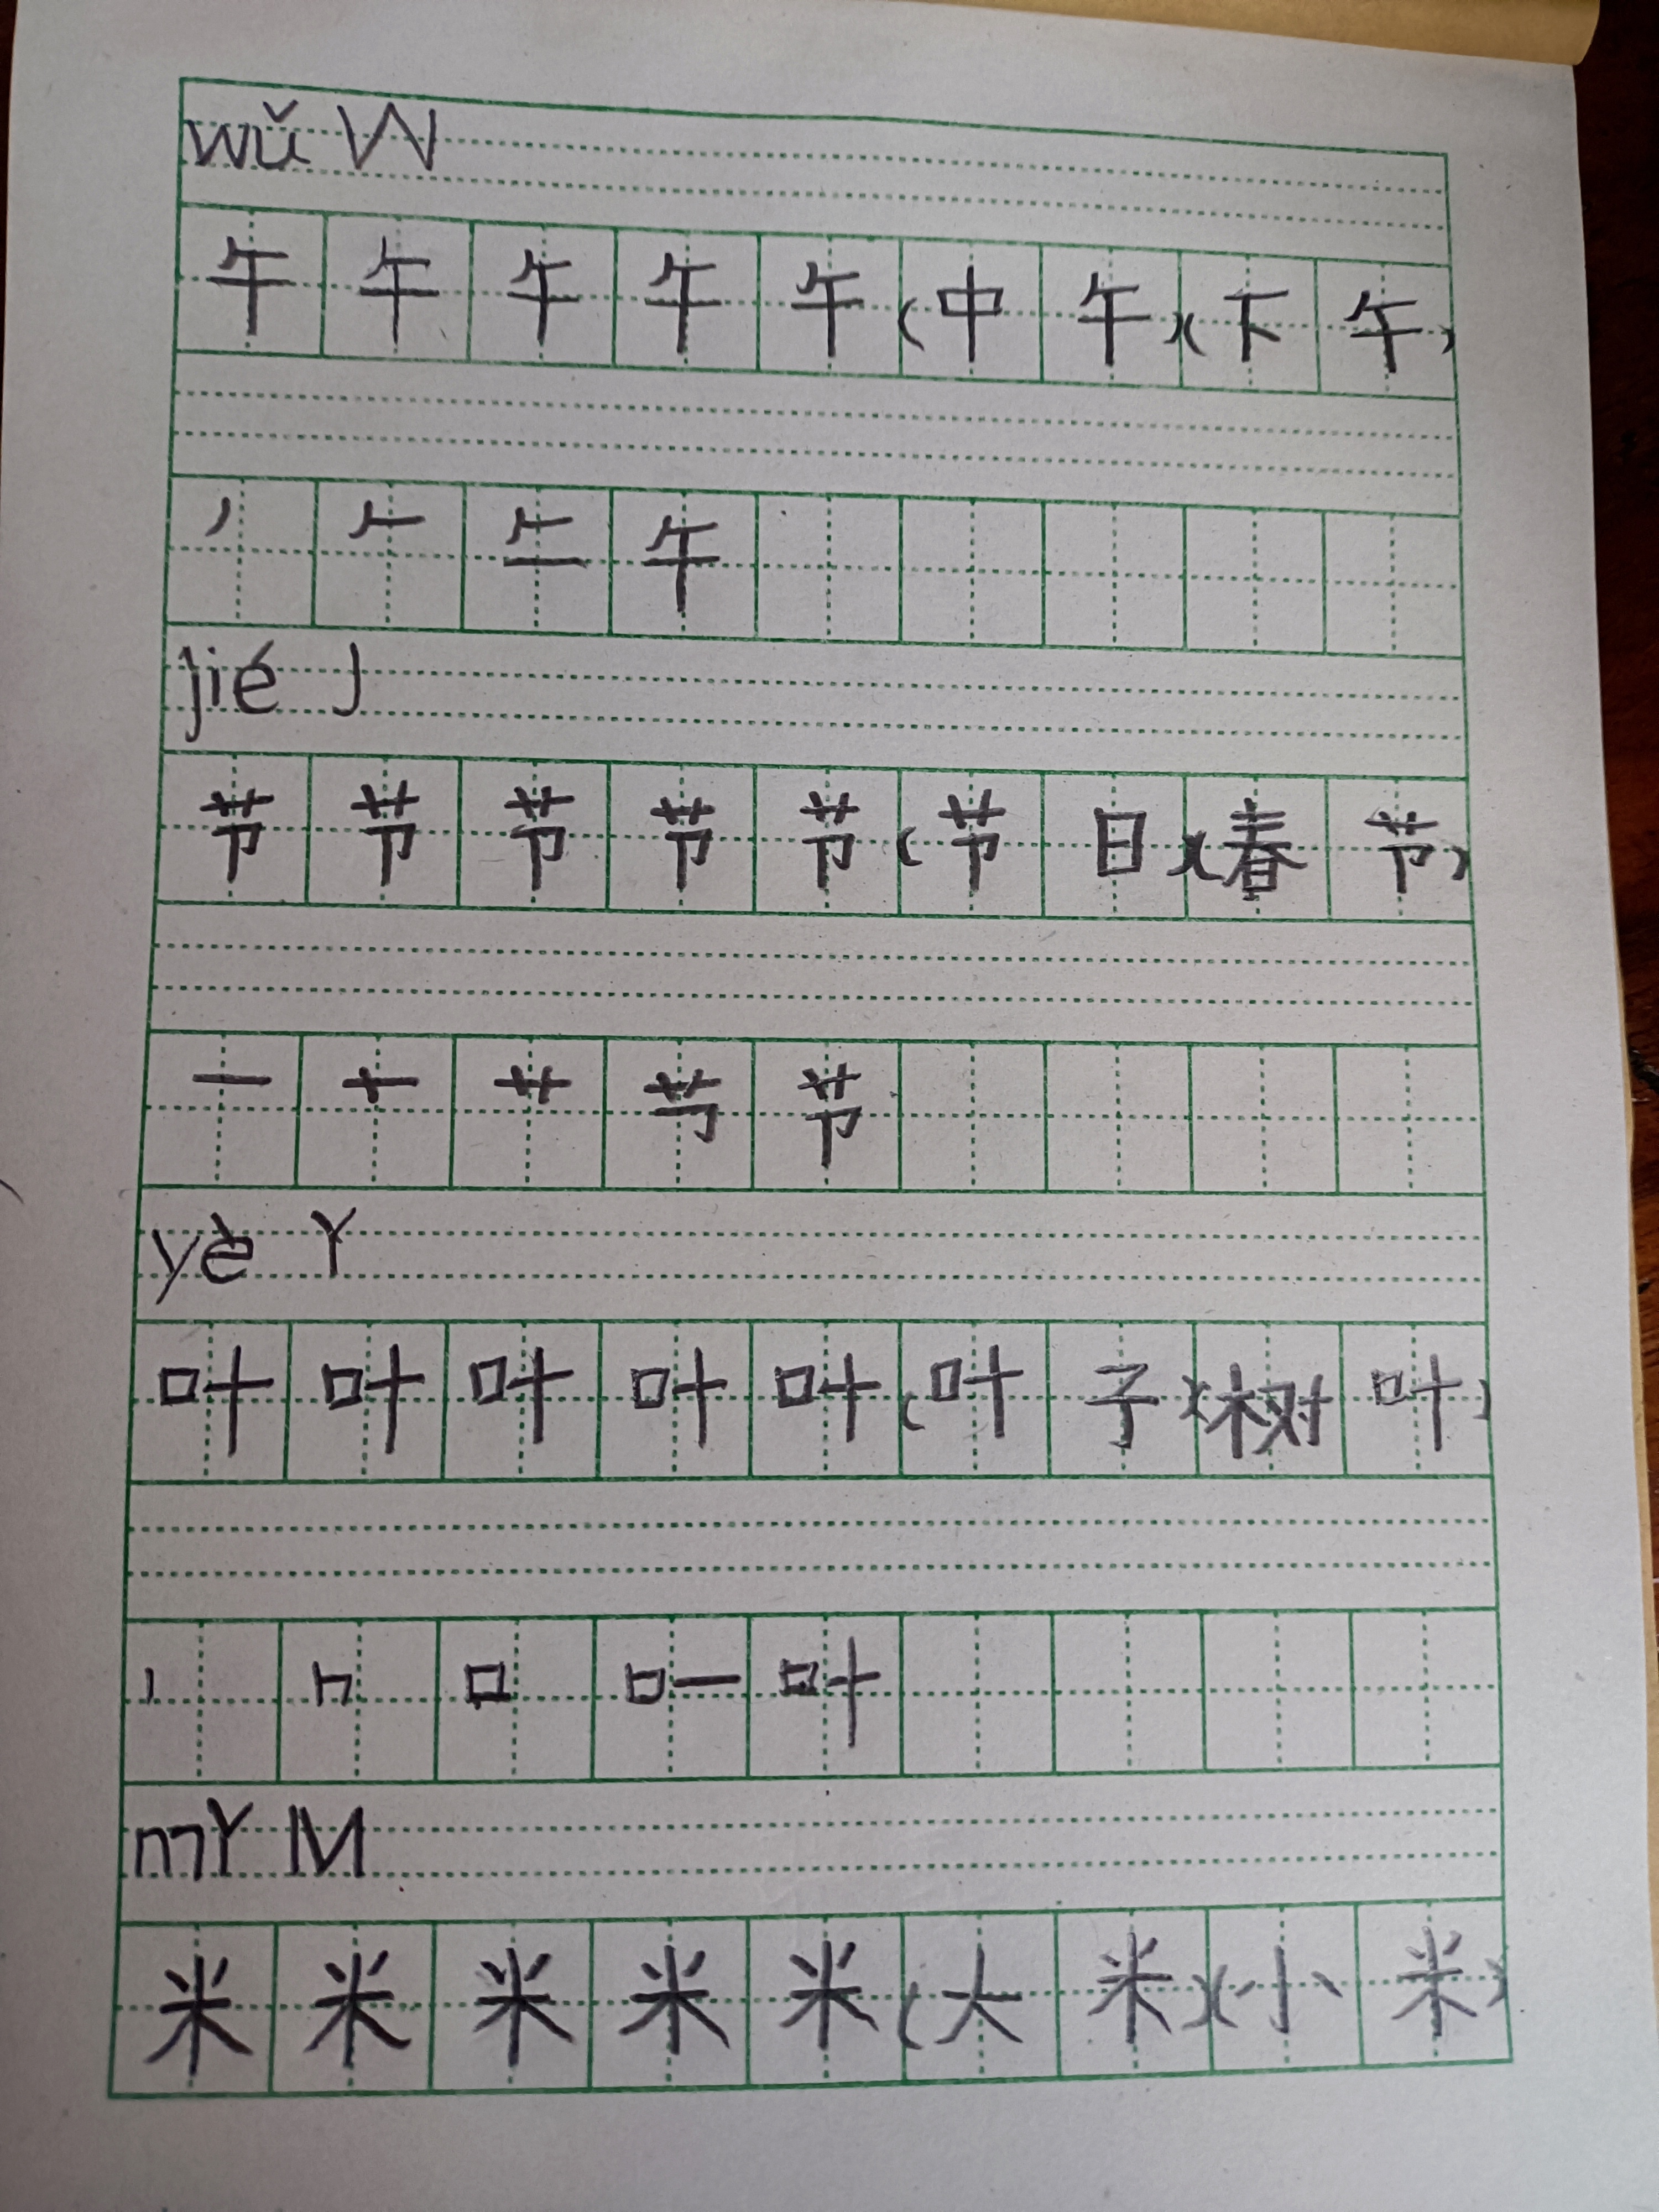 wǔ W
午 午 午 午 午 (中 午)(下 午)
丿 𠂉 𠂉一 午
jié J
节 节 节 节 节 (节 日)(春 节)
一 十 艹 节
yè Y
叶 叶 叶 叶 叶 (叶 子)(树 叶)
丨 冂 口 口一 叶
mǐ M
米 米 米 米 米 (大 米)(小 米)